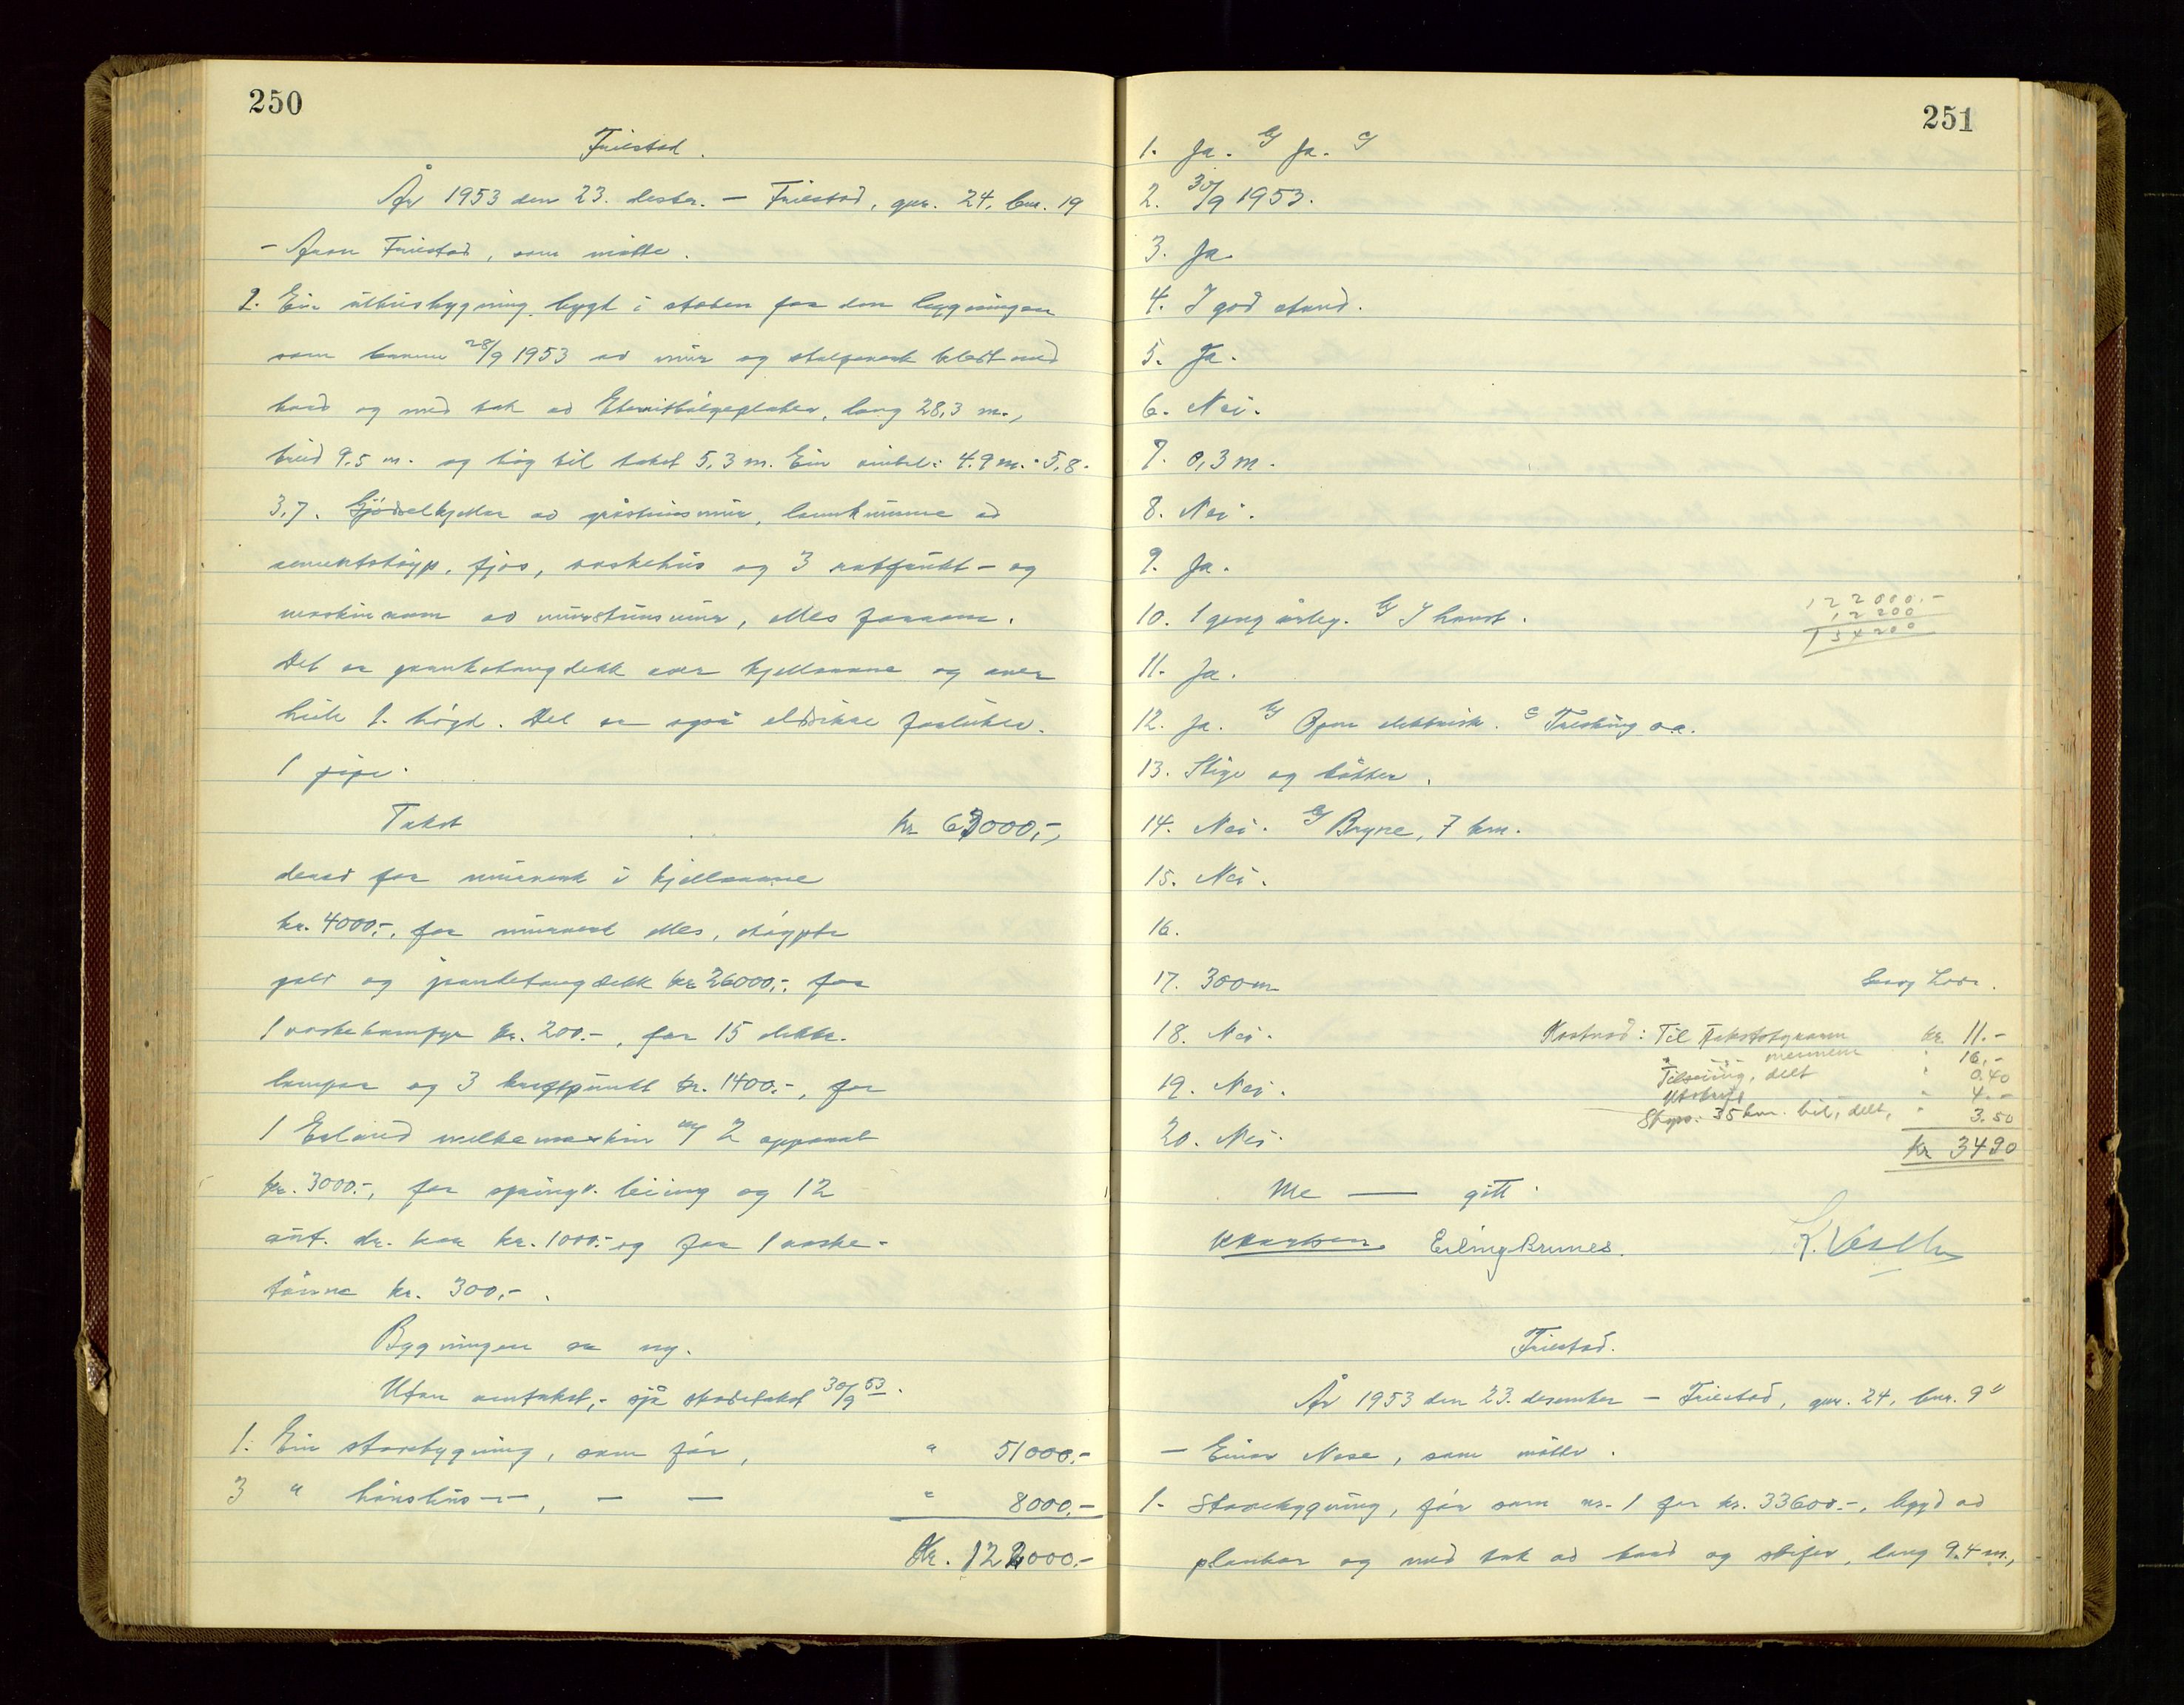 250
Friestad.
År 1953 den 23. desbr. — Friestad, gnr. 24, bnr. 19
- Friestad, som møtte.
2. Ein uthusbygning bygt i staden for den bygningen
som brann 28/9 1953 av mur og stolpeverk kledt med
bord og med tak av Eternitbølgeplater, lang 28,3 m.,
breid 9,5 m. og høg til taket 5,3 m. Ein vinkel: 4.9 m. · 5,8 ·
3,7. Gjødselkjellar av gråsteinsmur, landkumme av
sementstøyp, fjøs, vaskehus og 3 rotfrukt- og
maskinrom av mursteinsmur, elles
Det er jernbetongdekk over kjellarane og over
heile 1. høgd. Det er også
1 pipe.
Takst kr 63000,-,
derav for murverk i kjellarane
kr. 4000,-, for murverk elles, støypte
golv og jernbetongdekk kr 26000,-, for
1 vaskekomfyr kr. 200.-, for 15 elektr.
lampor og 3 kraftpunkt kr. 1400,-, for
1 melkemaskin m/ 2 apparat
kr. 3000.-, for springv. leiing og 12
aut. dr. kar kr. 1000.- og for 1 vaske-
tønne kr. 300,-.
Bygningen er ny.
Utan omtakst, - sjå skadetakst 30/9 53.
1. Ein stovebygning, som før, " 51000.-
3 " hønshus -"-, — — " 8000,-
Kr. 122000.-
251
1. Ja. Ja.
2. 30/9 1953.
3. Ja
4. I god stand.
5. Ja.
6. Nei.
7. 0,3 m.
8. Nei.
9. Ja.
10. 1 gong årleg. I haust.
122000.-
12200
134200
11. Ja.
12. Ja. elektrisk. Tresking o.a.
13. Stige og bøtter.
14. Nei. Bryne, 7 km.
15. Nei.
16.
17. 300 m
18. Nei.
19. Nei.
20. Nei.
Kostnad: Til takststyraren kr. 11.-
" -"- mennene " 16.-
Tilseiing, delt " 0.40
Utskrift " 4.-
Skyss: 35 km. bil, delt, " 3.50
kr 34 90
Me — gitt.
Erling Brunes.
Friestad.
År 1953 den 23. desember — Friestad, gnr. 24, bnr. 9
— Einar Nese, som møtte.
1. Stovebygning, før som nr. 1 for kr. 33600.-, bygd av
plankar og med tak av bord og skifer, lang 9.4 m.,